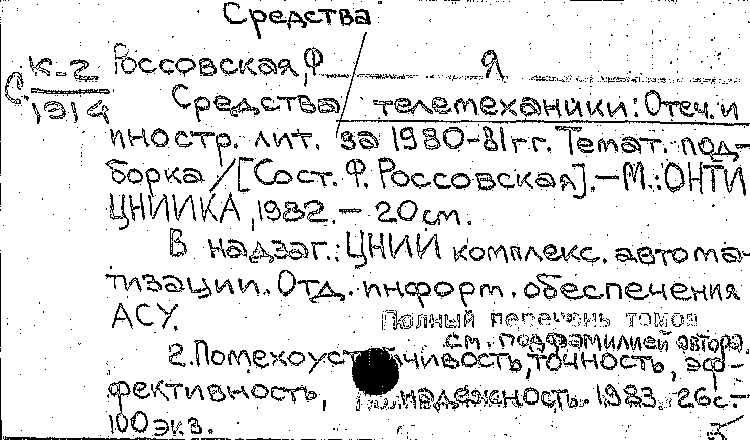 Средства
К-2 Россовская, Ф Я
С 1914 Средства телемеханики: Отеч. и
иностр. лит. за 1980-81 гг. Темат. под-
борка / [Сост. Ф. Россовская]. — М.: ОНТИ
ЦНИИКА, 1982. — 20 см.
В надзаг.: ЦНИИ комплекс. автома-
тизации. Отд. информ. обеспечения
АСУ.
Полный перечень томов
см. под фамилией автора.
2. Помехоустойчивость, точность, эф-
фективность, надежность. 1983. 26 с. —
100 экз.